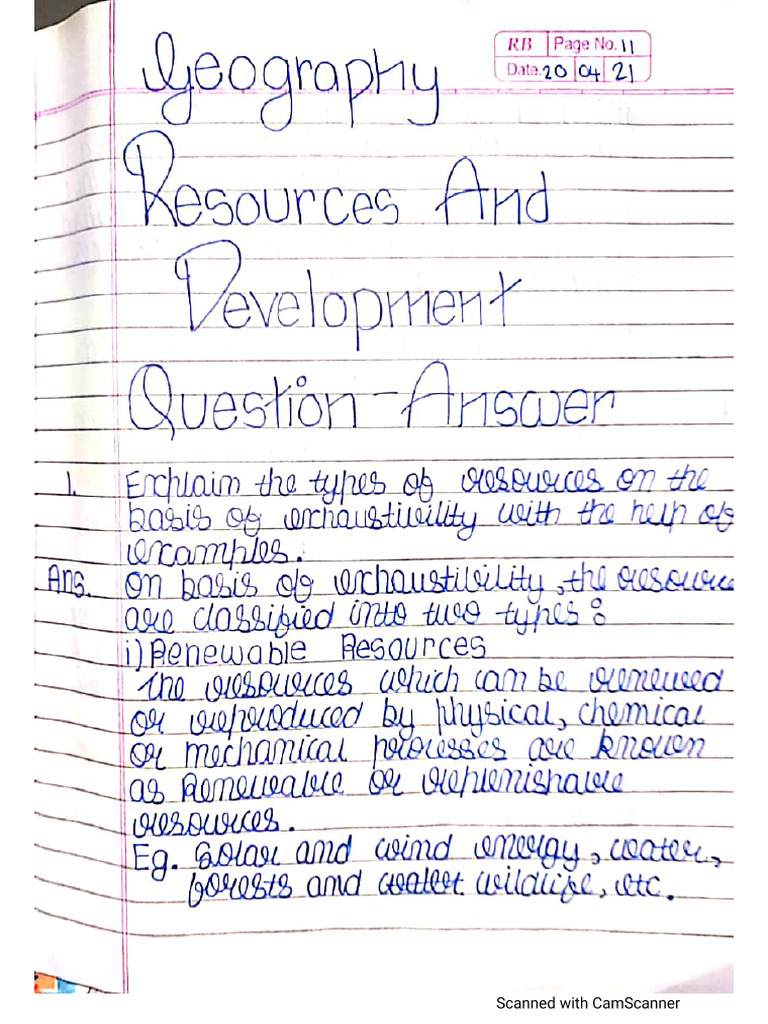 RB Page No. 11
Date. 20 04 21
Geography
Resources And
Development
Question-Answer
1. Explain the types of resources on the
basis of exhaustivility with the help of
examples.
Ans. On basis of exhaustivility, the resource
are classified into two types :
i) Renewable Resources
The resources which can be renewed
or reproduced by physical, chemical
or mechanical processes are known
as Renewable or replenishable
resources.
Eg. Solar and wind energy, water,
forests and wildlife, etc.
Scanned with CamScanner